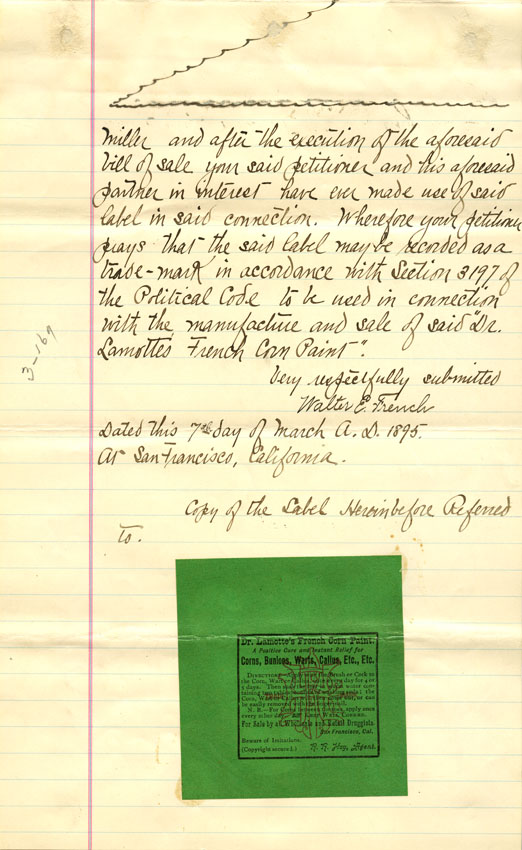 Miller and after the execution of the aforesaid
bill of sale your said petitioner and his aforesaid
partner in interest have ever made use of said
label in said connection. Wherefore your petitioner
prays that the said label may be recorded as a
trade-mark in accordance with Section 3197 of
the Political Code to be used in connection
with the manufacture and sale of said "Dr.
Lamottes French Corn Paint".
Very respectfully submitted
Walter E. French
Dated this 7th day of March A. D. 1895.
At San Francisco, California.
3-169
Copy of the Label Hereinbefore Referred
to.
Dr. Lamotte's French Corn Paint.
A Positive Cure and Instant Relief for
Corns, Bunions, Warts, Callus, Etc., Etc.
Directions
Brush or Cork to
the Corn, Wart
day for 4 or
5 days. Then
water
the
Corn, Wart
or can
be easily removed
N. B.—For
apply once
every other
For Sale by all Wholesale and Retail Druggists.
San Francisco, Cal.
Beware of Imitations.
(Copyright secured.)
Agent.